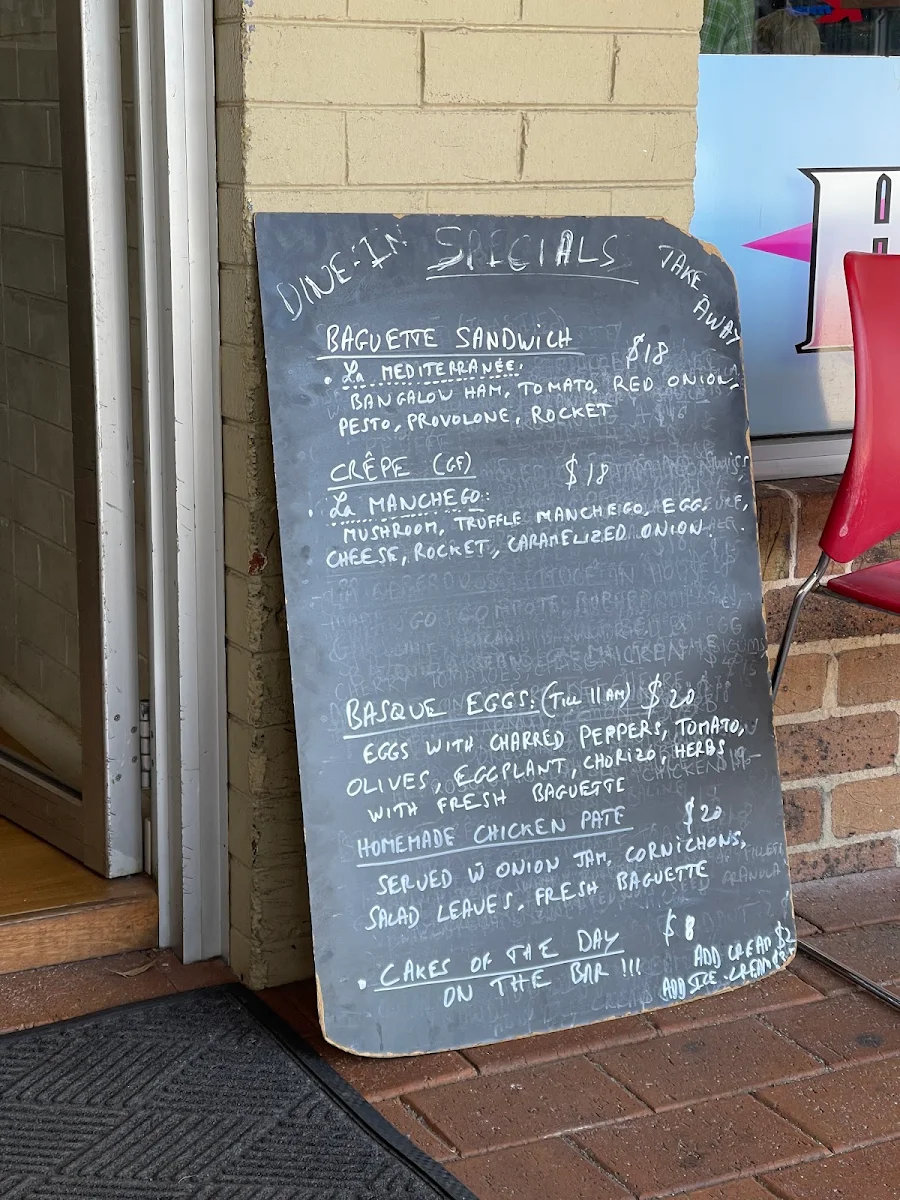 DINE-IN SPECIALS TAKE AWAY
BAGUETTE SANDWICH $18
• La MEDITERRANÉE:
BANGALOW HAM, TOMATO, RED ONION,
PESTO, PROVOLONE, ROCKET
CRÊPE (GF) $18
• La MANCHEGO:
MUSHROOM, TRUFFLE MANCHEGO, EGG,
CHEESE, ROCKET, CARAMELIZED ONION.
BASQUE EGGS: (TILL 11AM) $20
EGGS WITH CHARRED PEPPERS, TOMATO,
OLIVES, EGGPLANT, CHORIZO, HERBS
WITH FRESH BAGUETTE
HOMEMADE CHICKEN PATE $20
SERVED W ONION JAM, CORNICHONS,
SALAD LEAVES, FRESH BAGUETTE
• CAKES OF THE DAY $8
ON THE BAR !!!
ADD CREAM $2
ADD ICE-CREAM